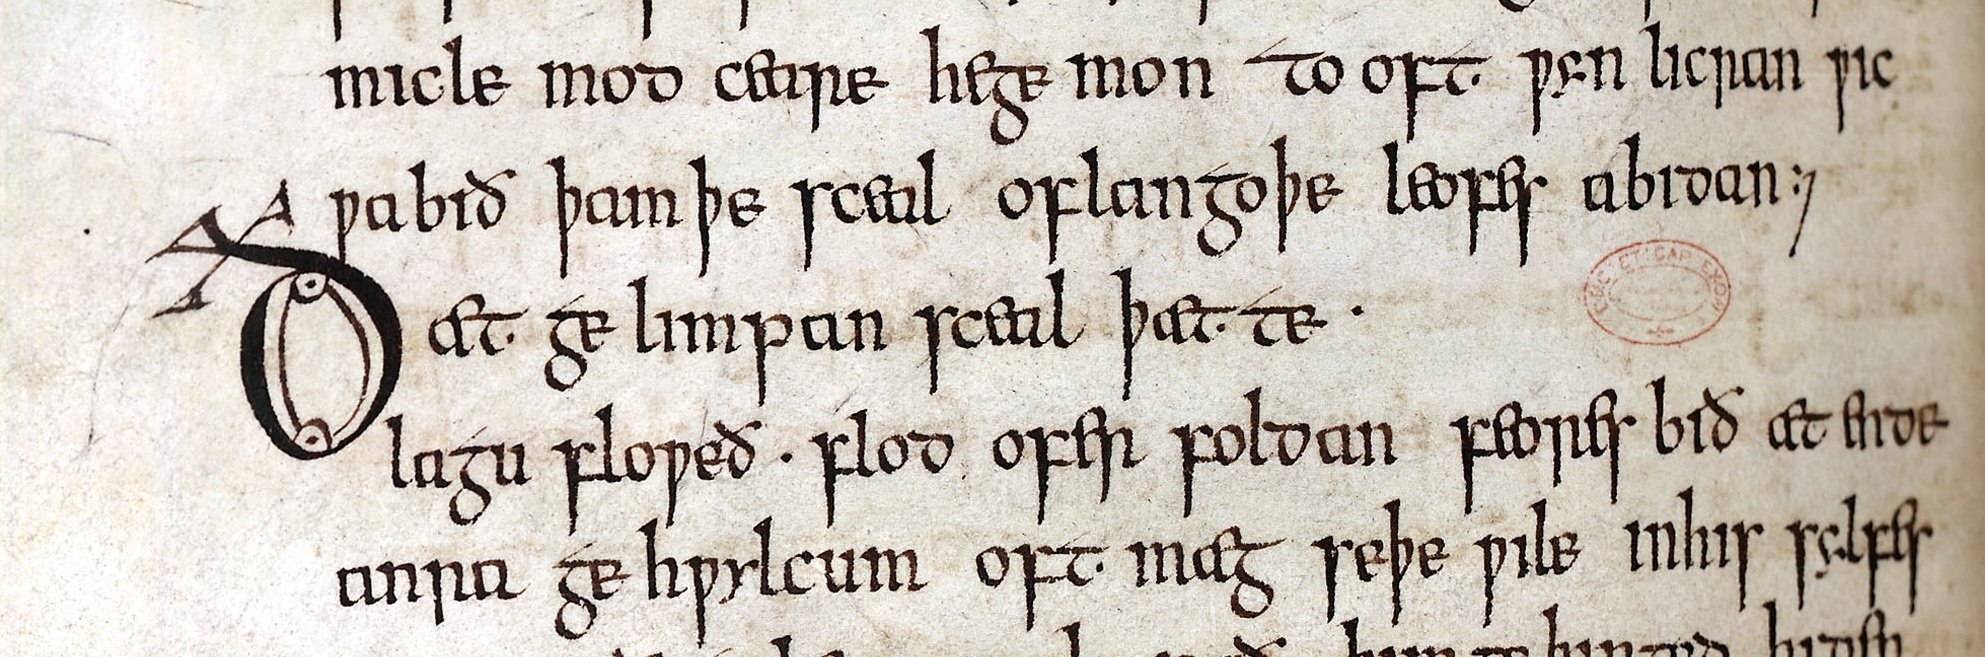 micle mod ceare hege mon to oft. ƿẏn licran ƿic
ƿa bið þam þe sceal of langoþe leofes abidan:⁊
Ðæt ge limpan sceal þæt. te ·
lagu floƿeð · flod ofer foldan feores bið æt ende
anra ge hƿylcum oft. mæg seþe ƿile in his sẏlfes